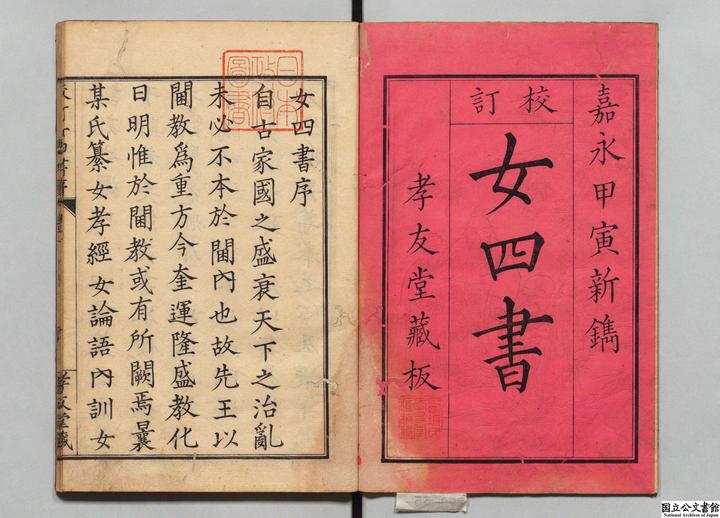 嘉永甲寅新鐫
校訂
女四書
孝友堂藏板
女四書序
自古家國之盛衰天下之治亂
未必不本於閫內也故先王以
閫教爲重方今奎運隆盛教化
日明惟於閫教或有所闕焉曩
某氏纂女孝經女論語內訓女
孝友堂藏
日本
圖書
国立公文書館
National Archives of Japan